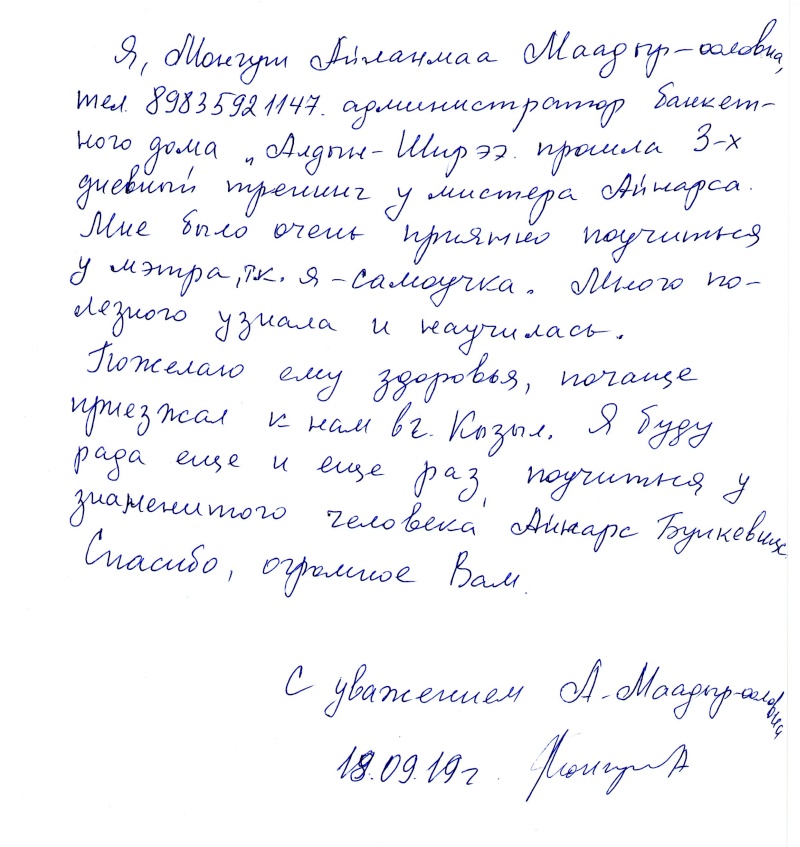 Я, Монгуш Айланмаа Маадыр-ооловна,
тел. 89835921147. администратор банкет-
ного дома „Алдын-Ширээ. прошла 3-х
дневный тренинг у мистера Айнарса.
Мне было очень приятно поучиться
у мэтра, т.к. я - самоучка. Много по-
лезного узнала и научилась.
Пожелаю ему здоровья, почаще
приезжал к нам в г. Кызыл. Я буду
рада еще и еще раз, поучиться у
знаменитого человека Айнарс Бункевицс.
Спасибо, огромное Вам.
С уважением А-Маадыр-ооловна
18.09.19г. Монгуш А